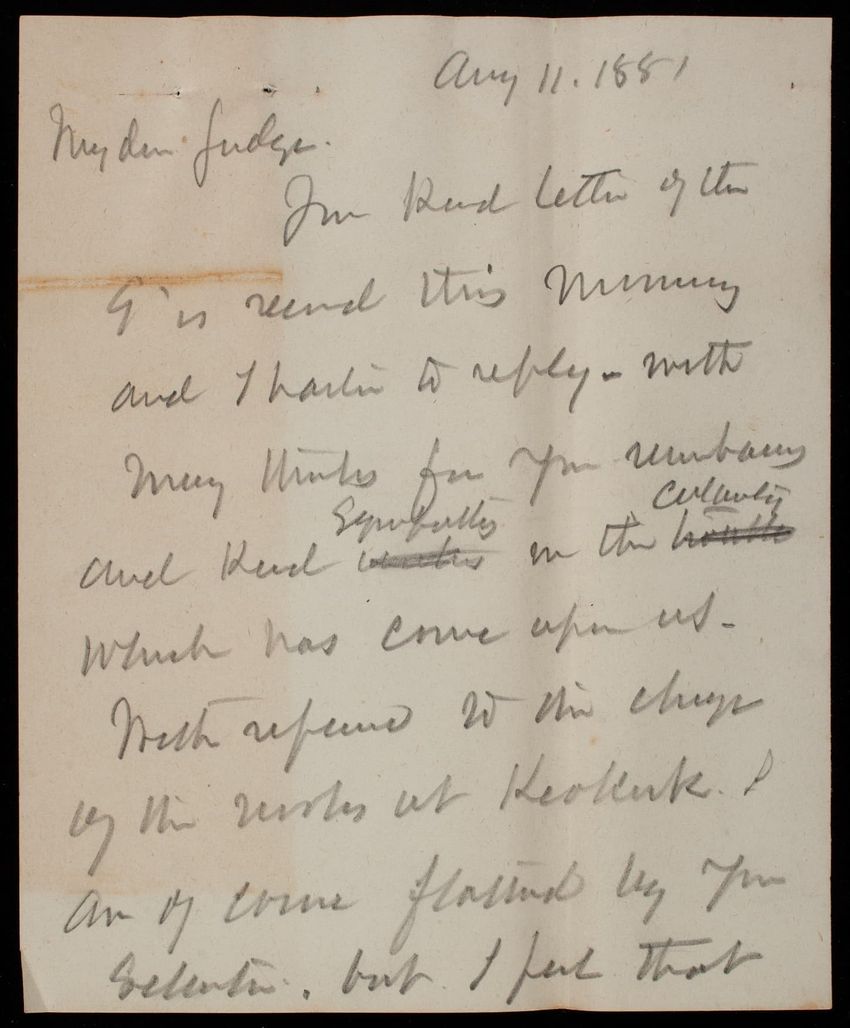 Aug 11. 1881
My dear Judge.
Your kind letter of the
9" is recevd this morning
and I hasten to reply - with
many thanks for your remembrance
Sympathy calamity
and kind wishes in the trouble
which has come upon us -
With reference to the charge
of the works at Keokuk. I
am of course flattered by your
Selection. but I feel that